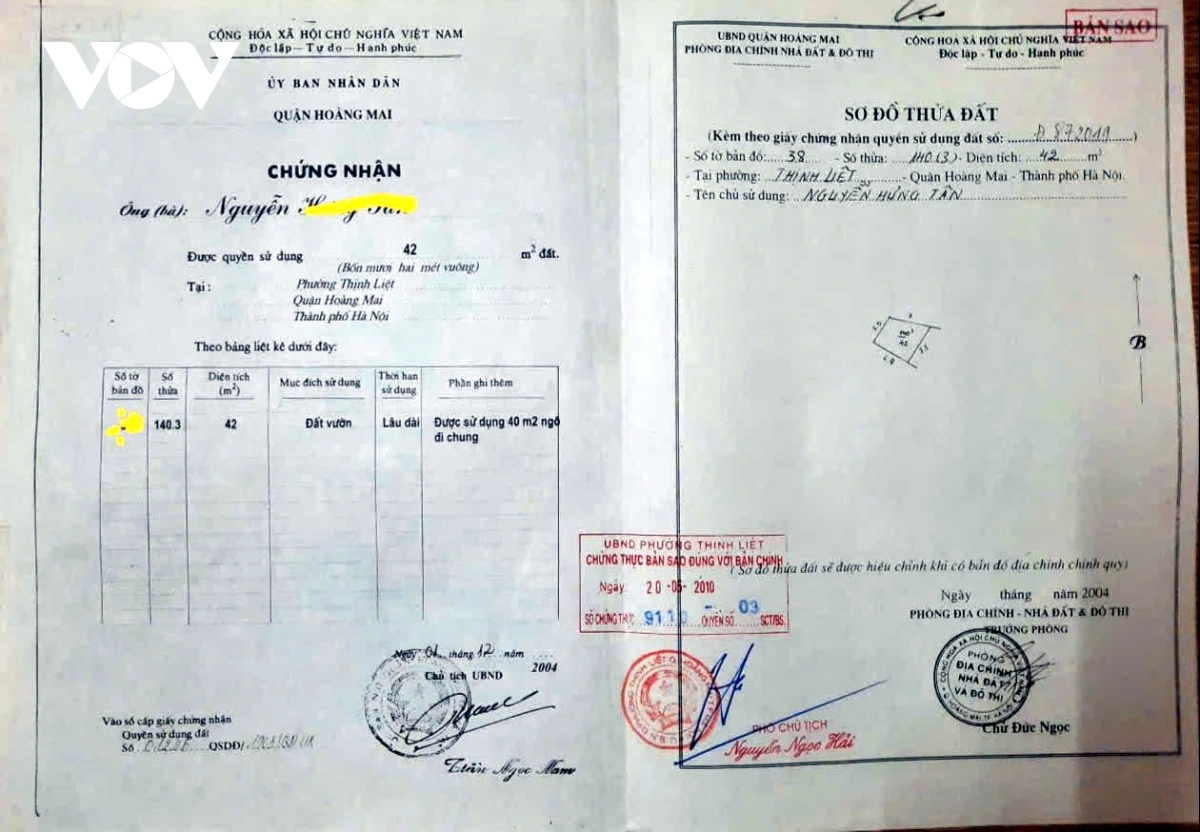 VOV
CỘNG HÒA XÃ HỘI CHỦ NGHĨA VIỆT NAM
Độc lập — Tự do — Hạnh phúc
ỦY BAN NHÂN DÂN
QUẬN HOÀNG MAI
CHỨNG NHẬN
Ông (bà): Nguyễn
Được quyền sử dụng 42 m² đất.
(Bốn mươi hai mét vuông)
Tại: Phường Thịnh Liệt
Quận Hoàng Mai
Thành phố Hà Nội
Theo bảng liệt kê dưới đây:
Số tờ bản đồ Số thửa Diện tích (m²) Mục đích sử dụng Thời hạn sử dụng Phần ghi thêm
140.3 42 Đất vườn Lâu dài Được sử dụng 40 m2 ngõ
đi chung
Ngày 01 tháng 12 năm 2004
Chủ tịch UBND
Vào sổ cấp giấy chứng nhận
Quyền sử dụng đất
Số QSDĐ/
Trần Ngọc Nam
BẢN SAO
UBND QUẬN HOÀNG MAI
PHÒNG ĐỊA CHÍNH NHÀ ĐẤT & ĐÔ THỊ
CỘNG HÒA XÃ HỘI CHỦ NGHĨA VIỆT NAM
Độc lập - Tự do - Hạnh phúc
SƠ ĐỒ THỬA ĐẤT
(Kèm theo giấy chứng nhận quyền sử dụng đất số: Đ 872019)
- Số tờ bản đồ: 38 - Số thửa: 140(3) - Diện tích: 42 m²
- Tại phường: THỊNH LIỆT - Quận Hoàng Mai - Thành phố Hà Nội.
- Tên chủ sử dụng: NGUYỄN HÙNG TÂN
B
UBND PHƯỜNG THỊNH LIỆT
CHỨNG THỰC BẢN SAO ĐÚNG VỚI BẢN CHÍNH
Ngày: 20 -05- 2010
SỐ CHỨNG THỰC QUYỂN SỐ 03 SCT/BS.
(Sơ đồ thửa đất sẽ được hiệu chỉnh khi có bản đồ địa chính chính quy)
Ngày tháng năm 2004
PHÒNG ĐỊA CHÍNH - NHÀ ĐẤT & ĐÔ THỊ
TRƯỞNG PHÒNG
PHÒNG
ĐỊA CHÍNH
NHÀ ĐẤT
VÀ ĐÔ THỊ
Chử Đức Ngọc
PHÓ CHỦ TỊCH
Nguyễn Ngọc Hải